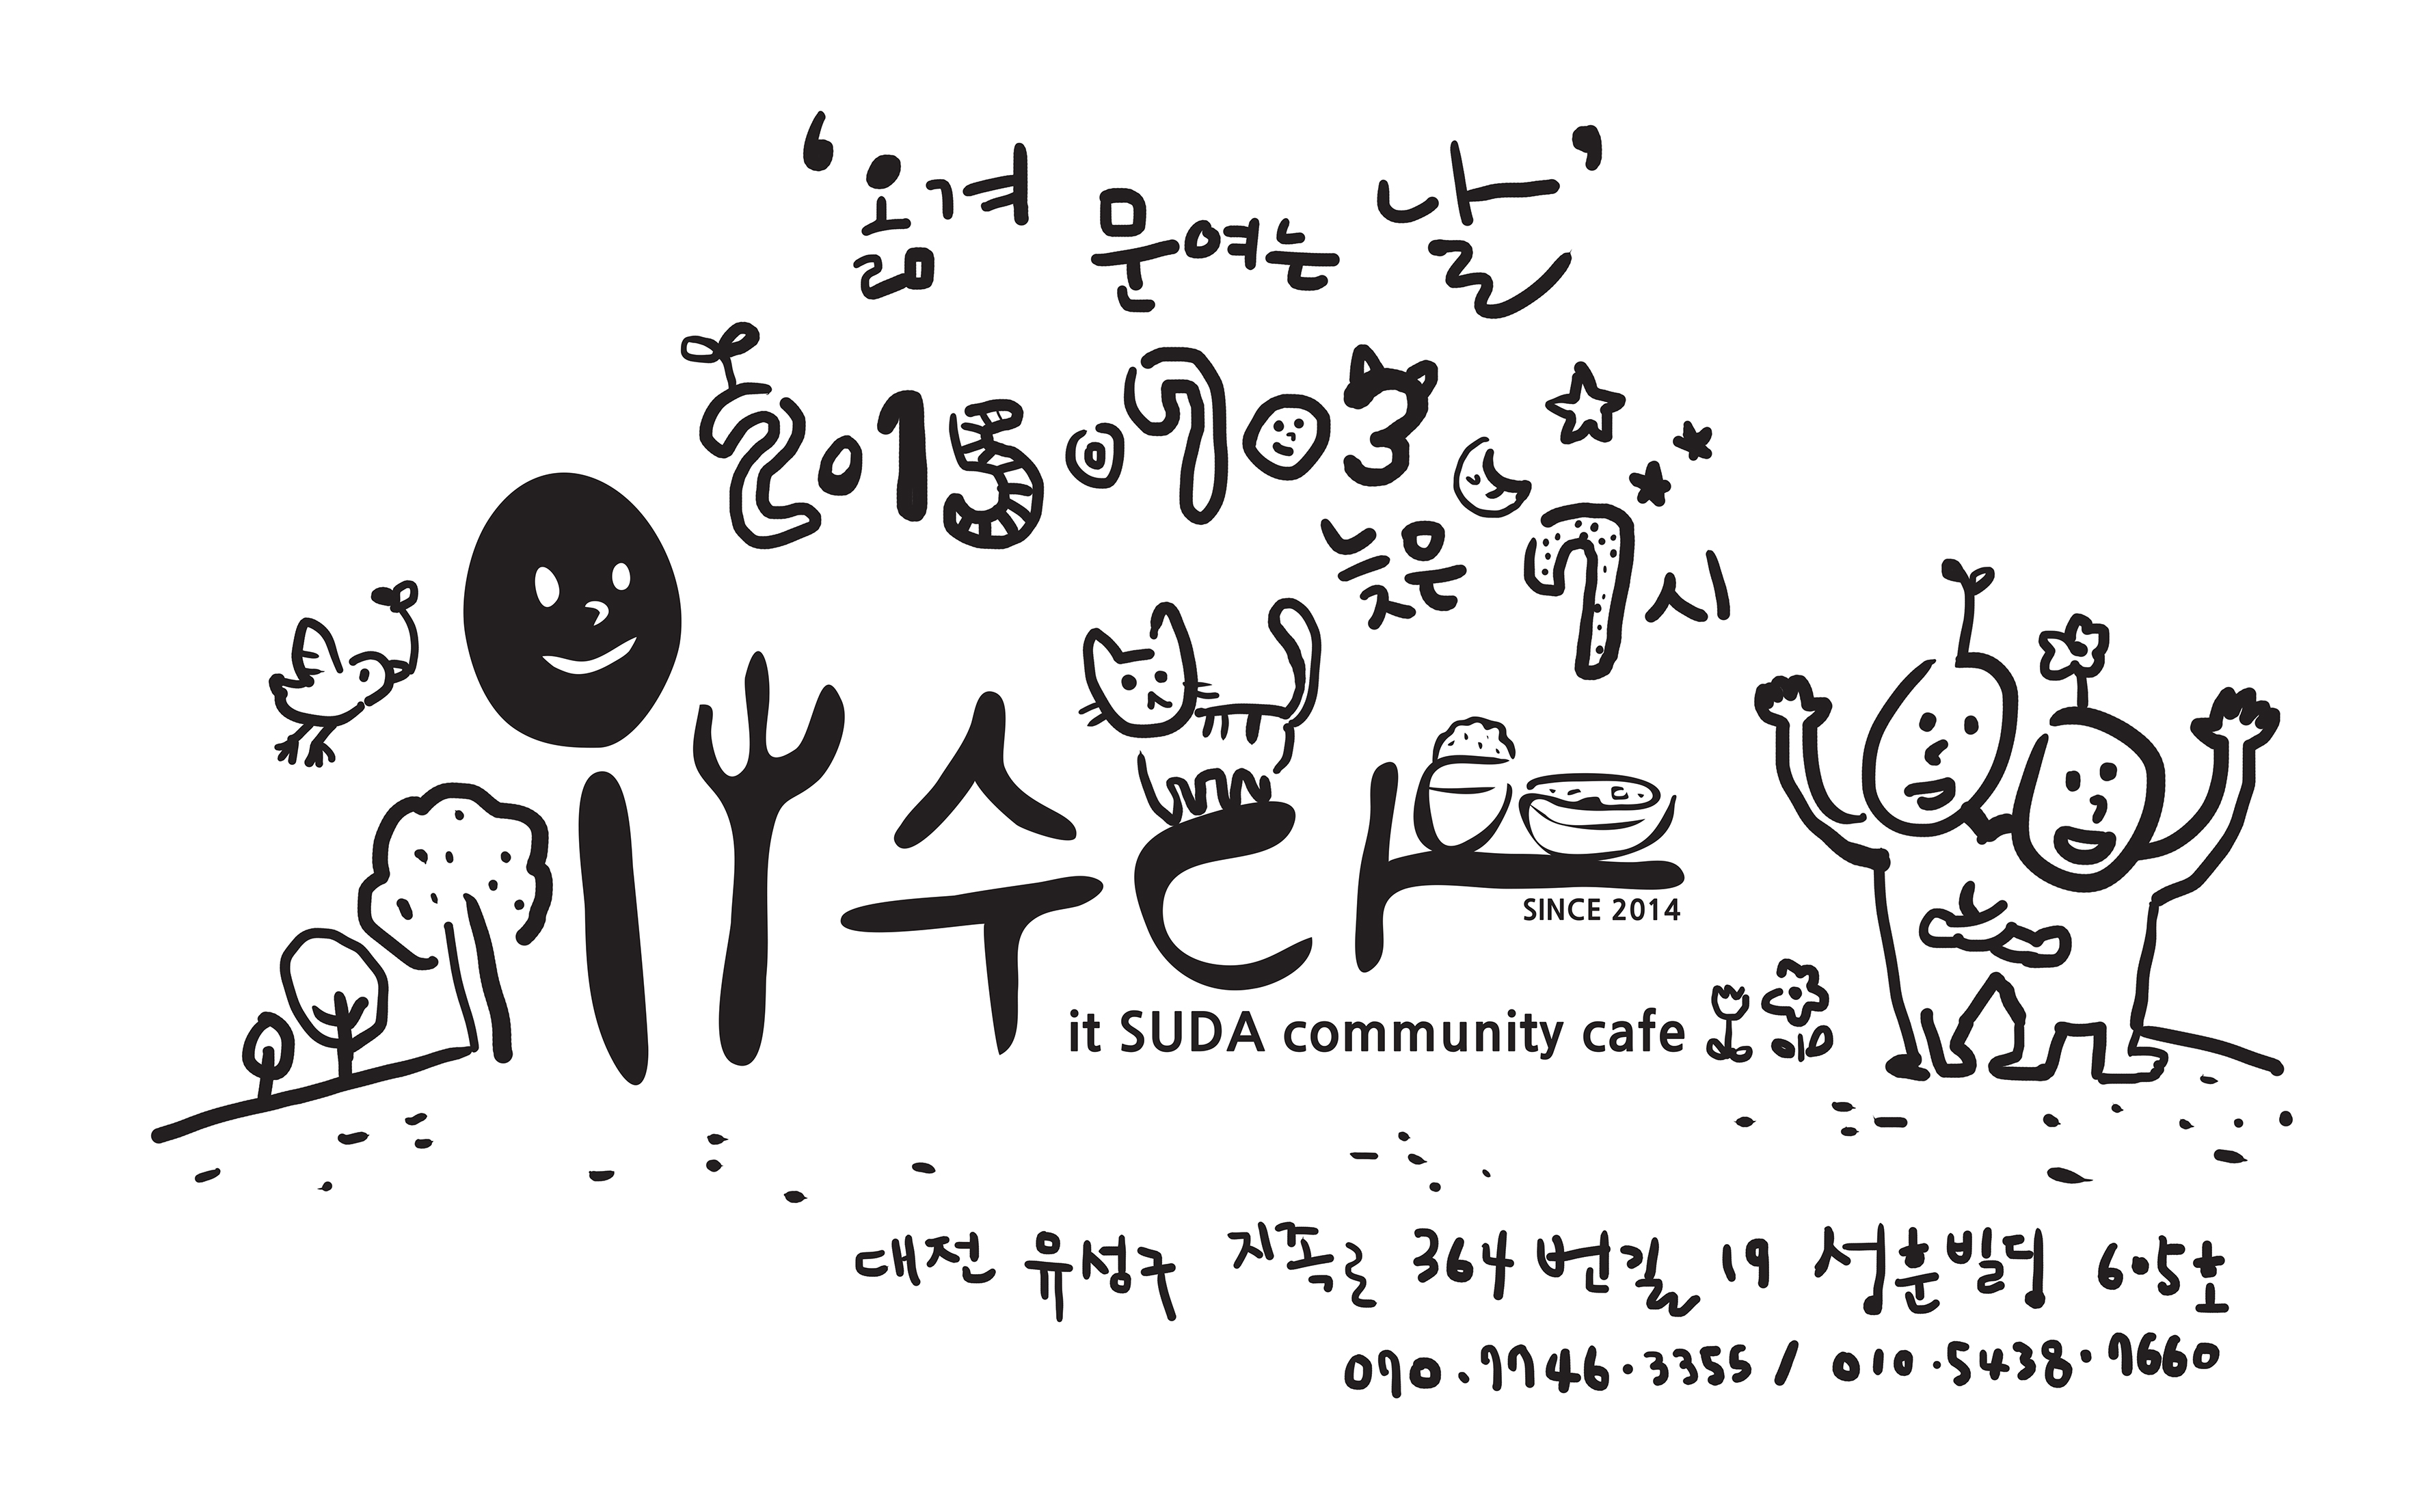 '옮겨 문여는 날'
2015 0703
늦은 7시
잇수다
SINCE 2014
it SUDA community cafe
대전 유성구 지족로 364번길 19 성훈빌딩 605호
070.7746.3355 / 010.5438.7660